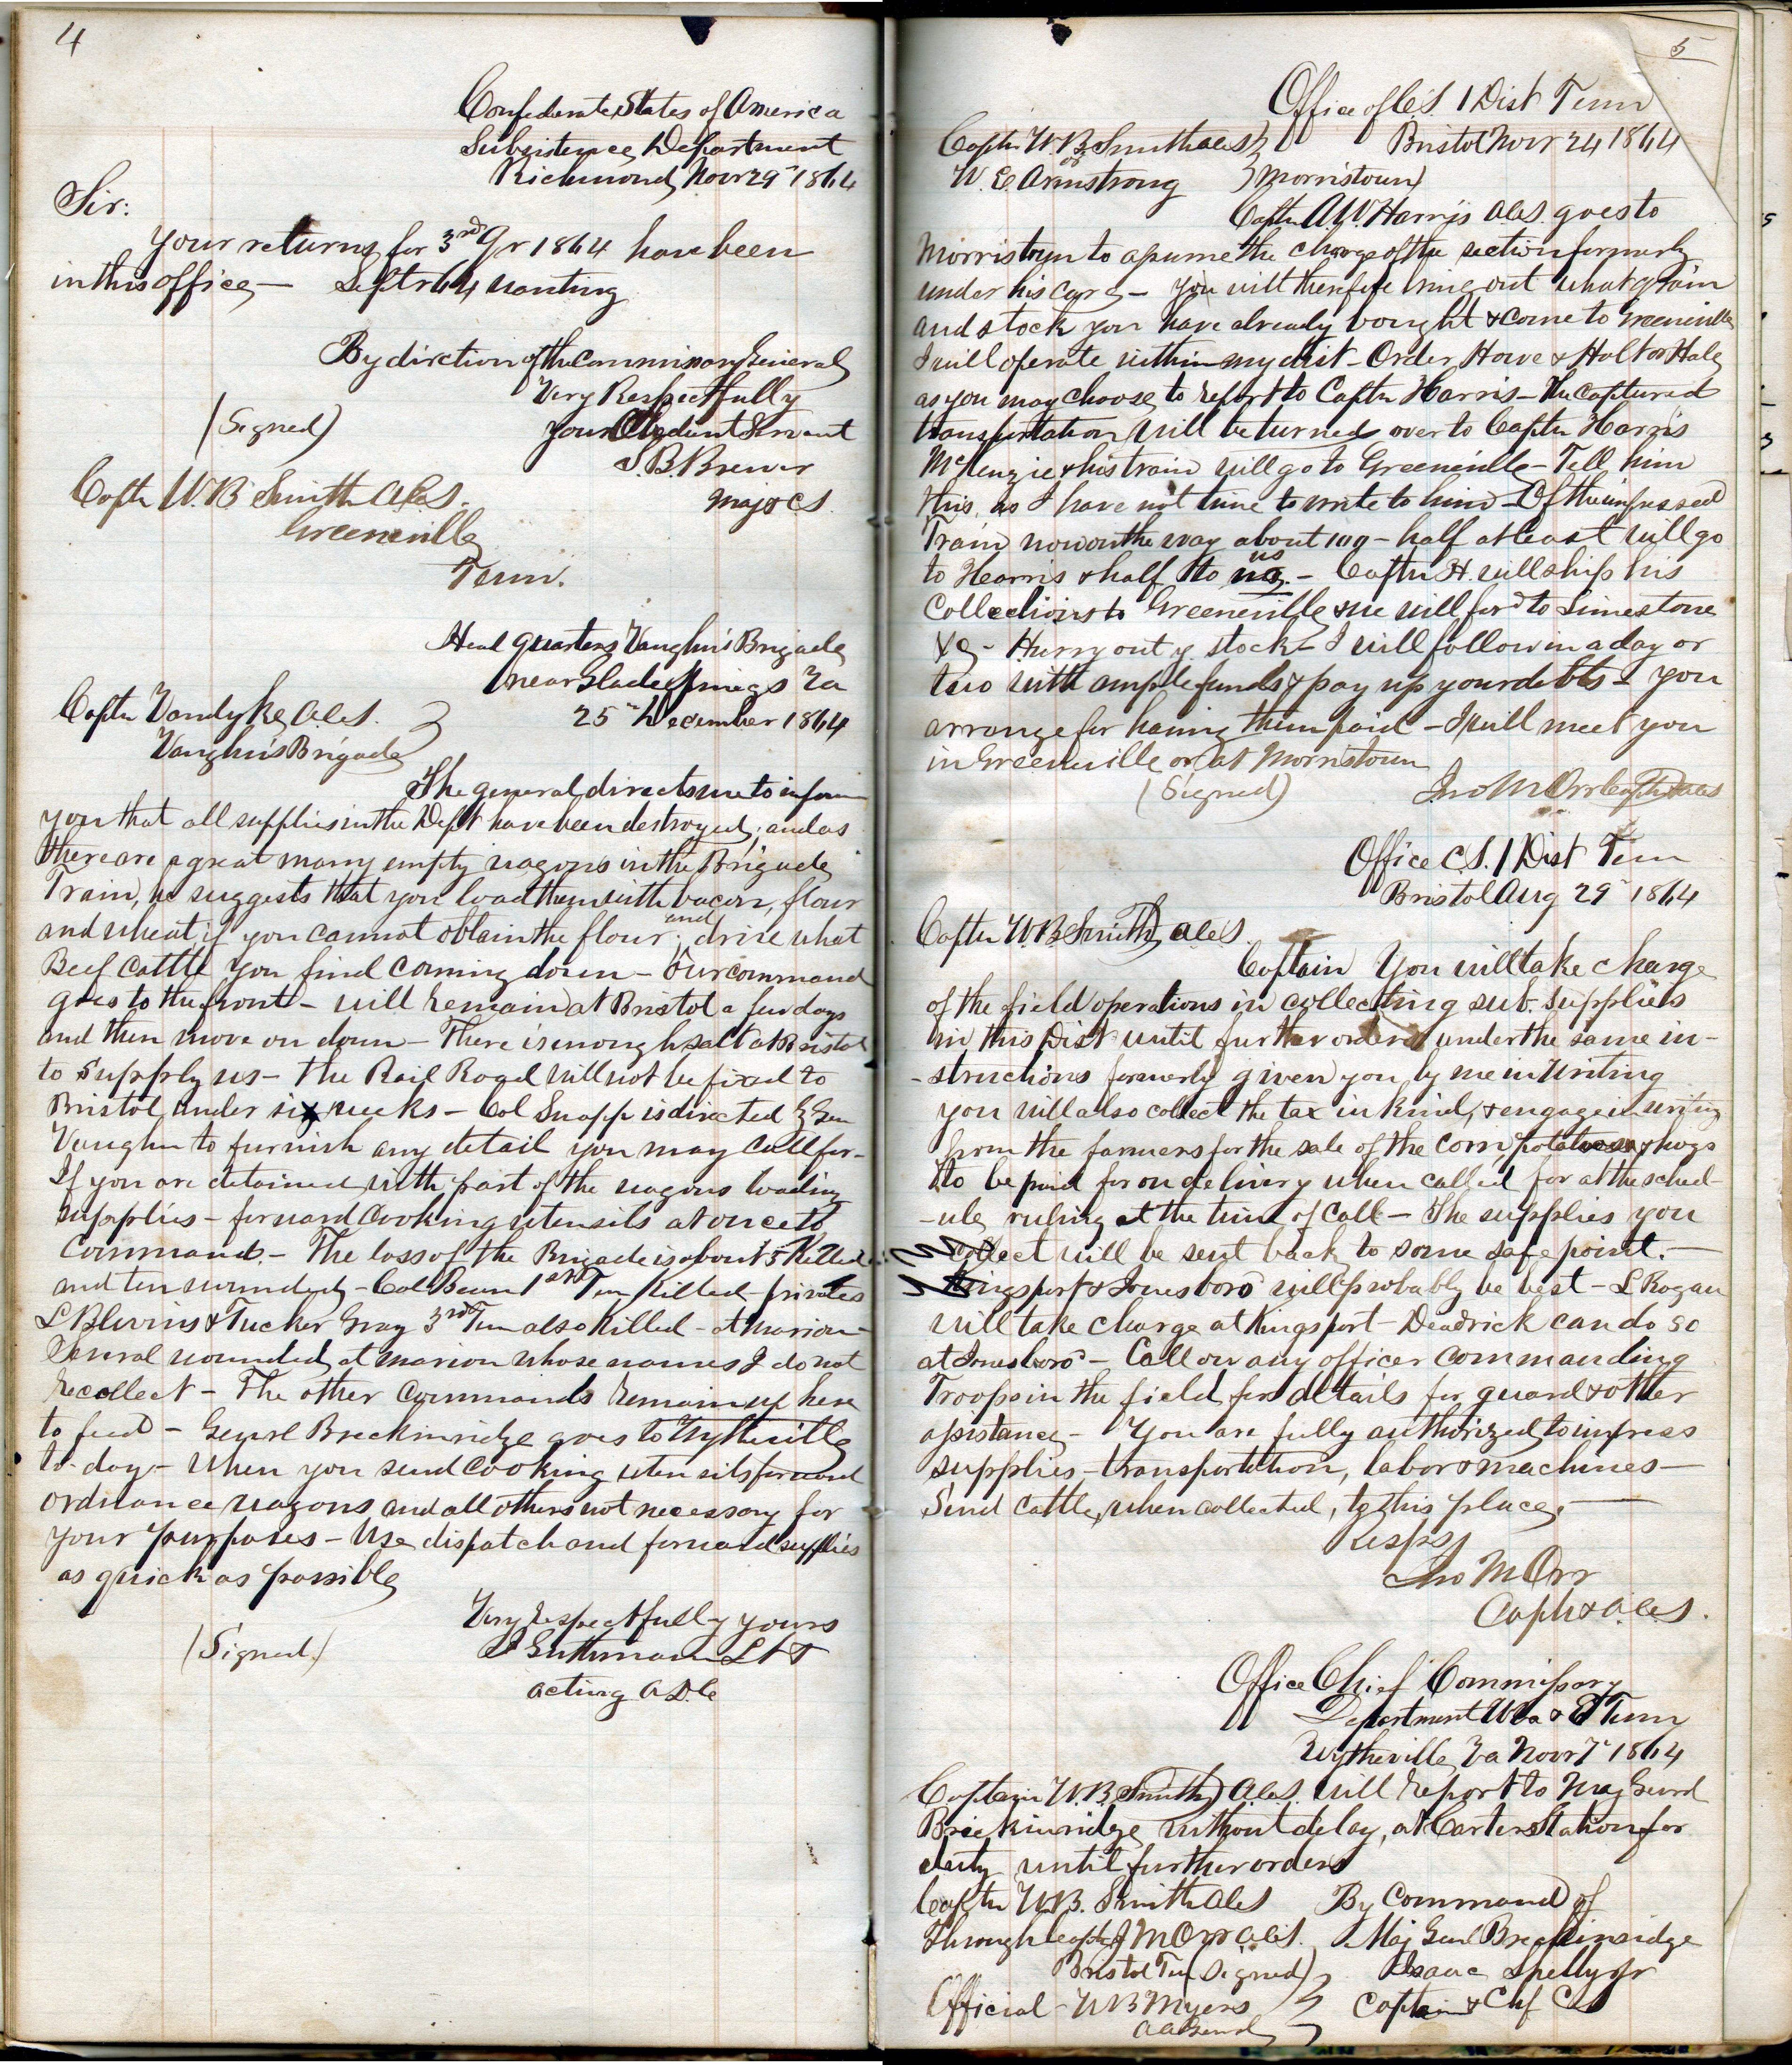 4
Confederate States of America
Subsistence Department
Richmond Novr 29" 1864
Sir:
Your returns for 3rd Qr 1864 have been
in this office — Septr 64 wanting
By direction of the Commissary General
Very Respectfully
(Signed) your Obedient Servant
S. B. Brewer
Maj & CS.
Captn W. B. Smith ACS.
Greeneville
Tenn.
Head quarters Vaughn's Brigade
near Glade Springs Va
Captn Vandyke ACS. 25" December 1864
Vaughn's Brigade
The general directs me to inform
you that all supplies in the Dept have been destroyed; and as
there are a great many empty wagons in the Brigade
Train, he suggests that you load them with bacon, flour
and wheat, if you cannot obtain the flour; and drive what
Beef Cattle you find coming down — Our command
goes to the front — will remain at Bristol a few days
and then move on down — There is enough salt at Bristol
to supply us — the Rail Road will not be fixed to
Bristol under six weeks — Col Snapp is directed by Gen
Vaughn to furnish any detail you may call for —
If you are detained with part of the wagons loading
supplies — forward Cooking utensils at once to
Command. — The loss of the Brigade is about 5 Killed
and ten wounded — Col Bean 1st Ten Killed — privates
L Blevins & Tucker Gray 3rd Ten also Killed — at Marion —
Several wounded at Marion whose names I do not
recollect — The other Commands remain up here
to feed — Genrl Breckinridge goes to Wytheville
to-day — When you send cooking utensils forward
ordnance wagons and all others not necessary for
your purposes — Use dispatch and forward supplies
as quick as possible
Very respectfully yours
(Signed.) Lt
acting A.D.C
5
Office of C.S. 1 Dist Tenn
Captn W. B. Smith ACS Bristol Novr 24 1864
or
W. C Armstrong Morristown
Captn A. W. Harris ACS. goes to
Morristown to assume the charge of the section formerly
under his care — You will therefore bring out what grain
and stock you have already bought & come to Greeneville
I will operate within my dist — Order Howe & Holt or Hale
as you may choose to report to Captn Harris — The Captured
transportation will be turned over to Captn Harris
McKenzie & his train will go to Greeneville — Tell him
this, as I have not time to write to him — Of the impressed
Train now on the way about 100 — half at least will go
to Harris & half to us us. — Captn H. will ship his
Collections to Greeneville & we will ford to Limestone
&c — Hurry out y. stock — I will follow in a day or
two with ample funds & pay up your debts — you
arrange for having them paid — I will meet you
in Greeneville or at Morristown
(Signed) Jno M Orr Capt & ACS
Office C.S. 1 Dist Tenn
Bristol Aug 29" 1864
Captn W. B. Smith, ACS
Captain You will take charge
of the field operations in collecting sub. supplies
in this Dist until further orders under the same in-
-structions formerly given you by me in writing
you will also collect the tax in kind, & engage in writing
from the farmers for the sale of the corn, potatoes & hogs
to be paid for on delivery when called for at the sched-
-ule ruling at the time of Call — The supplies you
collect will be sent back to some safe point. —
Kingsport & Jonesboro will probably be best — L Rogan
will take charge at Kingsport — Deadrick can do so
at Jonesboro — Call on any officer commanding
Troops in the field for details for guard & other
assistance — You are fully authorized to impress
supplies — transportation, labor & machines —
Send Cattle, when collected, to this place. —
Respy
Jno M Orr
Capt & ACS.
Office Chief Commissary
Department W Va & E Tenn
Wytheville Va Novr 7" 1864
Captain W. B. Smith ACS. will report to Maj Genrl
Breckinridge without delay, at Carters Station for
duty until further orders
Captn W. B. Smith ACS By Command of
Through Capt J M Orr ACS. Maj Genl Breckinridge
Bristol Ten (Signed) Isaac Shelby Jr
Official — W B Myers Captain & Chf CS
AAGenrl